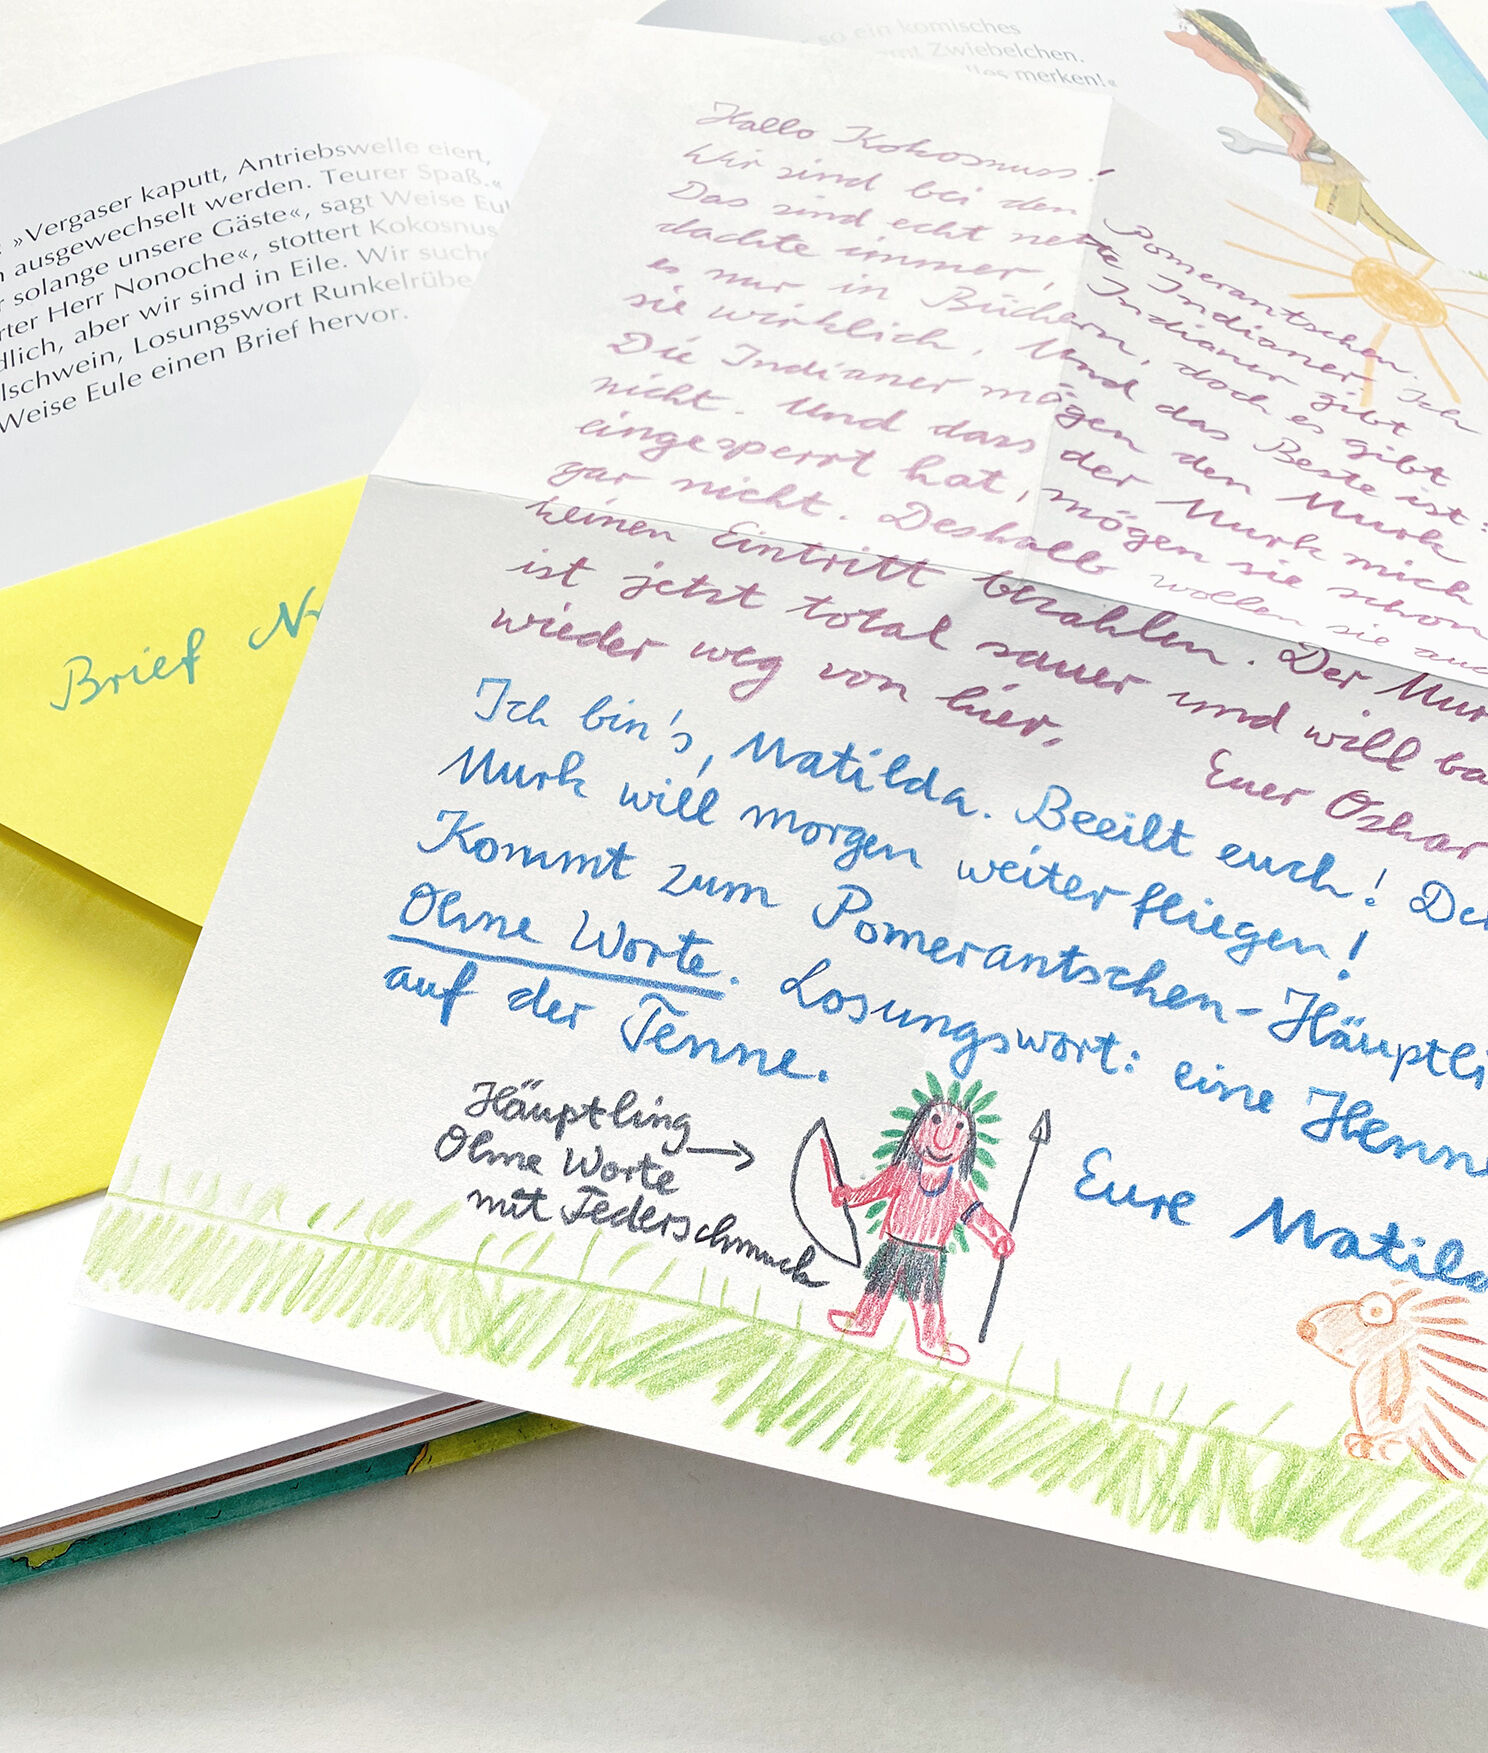 »Vergaser kaputt, Antriebswelle eiert,
ausgewechselt werden. Teurer Spaß.«
solange unsere Gäste«, sagt Weise Eul
rter Herr Nonoche«, stottert Kokosnus
dlich, aber wir sind in Eile. Wir such
lschwein, Losungswort Runkelrübe
Weise Eule einen Brief hervor.
so ein komisches
Zwiebelchen.
merken!«
Brief N
Hallo Kokosnuss!
Wir sind bei den Pomerantschen.
Das sind echt nette Indianer. Ich
dachte immer, Indianer gibt
es nur in Büchern, doch es gibt
sie wirklich. Und das Beste ist:
Die Indianer mögen den Murk
nicht. Und dass der Murk mich
eingesperrt hat, mögen sie schon
gar nicht. Deshalb wollen sie auch
keinen Eintritt bezahlen. Der Mur
ist jetzt total sauer und will ba
wieder weg von hier.
Euer Oskar
Ich bin's, Matilda. Beeilt euch! Der
Murk will morgen weiterfliegen!
Kommt zum Pomerantschen-Häuptli
Ohne Worte. Losungswort: eine Henne
auf der Tenne.
Eure Matilda
Häuptling
Ohne Worte
mit Federschmuck